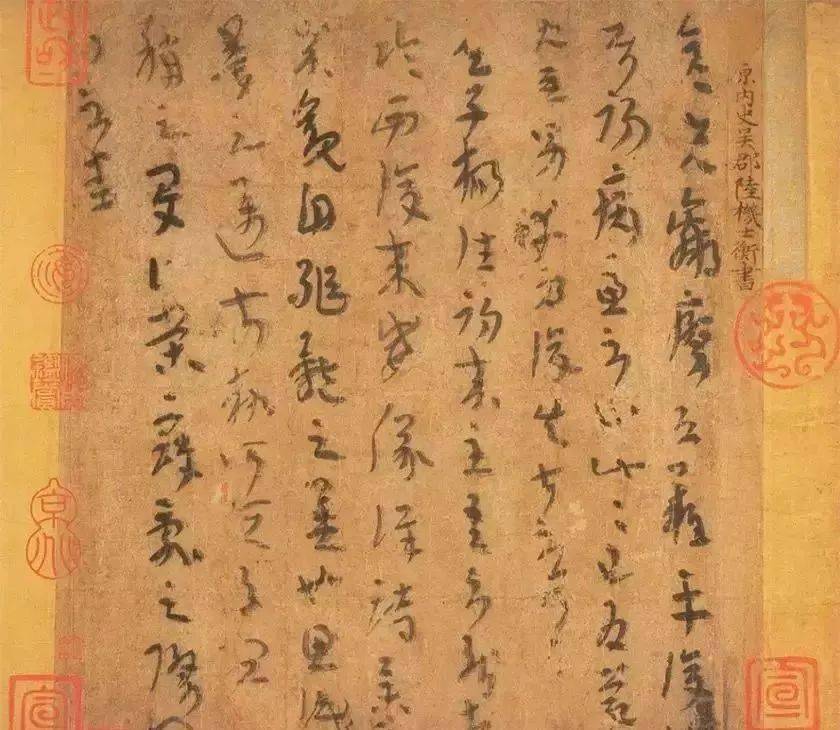 晉內史吳郡陸機士衡書
彥先羸瘵恐難平復
往屬初病慮不止此此已為慶
承使唯男幸為復失前憂耳
吳子楊往初來主吾不能
臨西復來威儀詳跱舉
成觀自軀體之美也思識
量之邁前執所恒有宜
稱之夏伯榮寇亂之際聞
問不悉